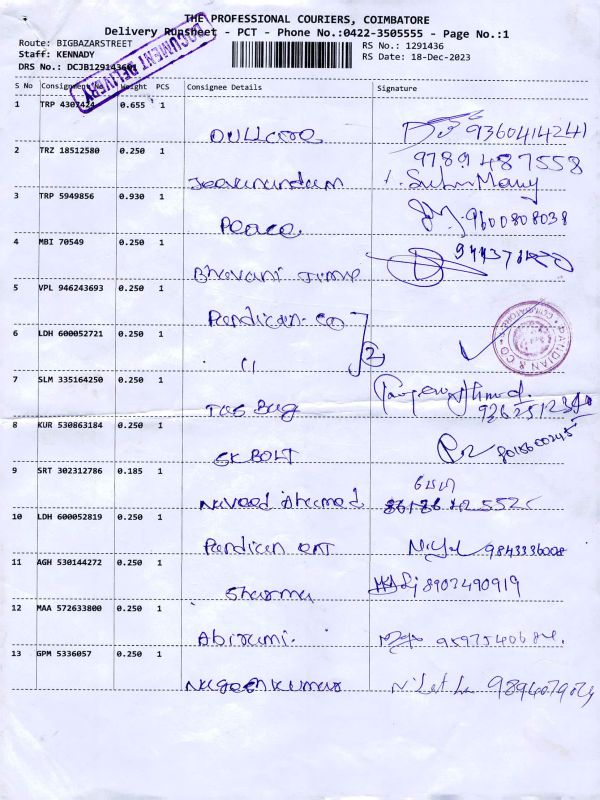 THE PROFESSIONAL COURIERS, COIMBATORE
Delivery Runsheet - PCT - Phone No.:0422-3505555 - Page No.:1
Route: BIGBAZARSTREET
RS No.: 1291436
Staff: KENNADY
RS Date: 18-Dec-2023
DRS No.: DCJB1291436
DOCUMENT DELIVERY
S No Consignment No Weight PCS Consignee Details Signature
1 TRP 4307424 0.655 1
9360414241
2 TRZ 18512580 0.250 1
9789487558
Jeevanandam
3 TRP 5949856 0.930 1
Peace 9600808038
4 MBI 70549 0.250 1
Bhavani
5 VPL 946243693 0.250 1
Pandian CO
PANDIAN & CO
COIMBATORE
6 LDH 600052721 0.250 1
11 2
7 SLM 335164250 0.250 1
Bag
8 KUR 530863184 0.250 1
SK BOLT
9 SRT 302312786 0.185 1
Naveed Ahamed
10 LDH 600052819 0.250 1
Pandian 9843336008
11 AGH 530144272 0.250 1
Sharma 8903490919
12 MAA 572633800 0.250 1
Abirami.
13 GPM 5336057 0.250 1
Nageshkumar